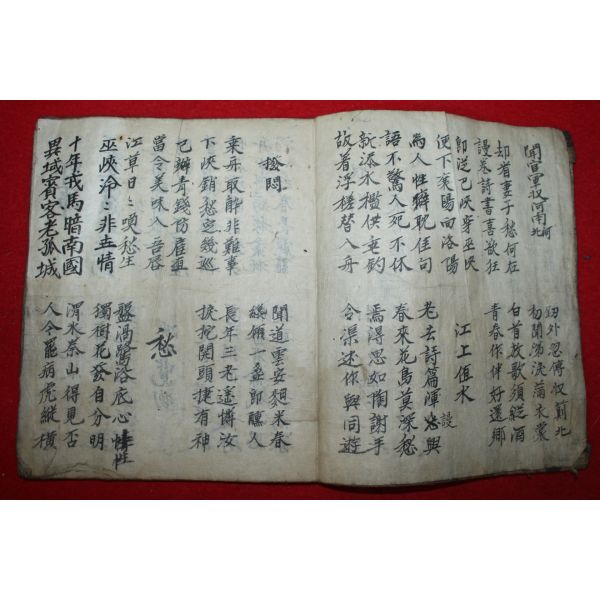 聞官軍收河南河北
釼外忽傳収薊北
初聞涕淚滿衣裳
却看妻子愁何在
謾卷詩書喜欲狂
白首放歌須縱酒
青春作伴好還鄉
即從巴峽穿巫峽
便下襄陽向洛陽
江上值水
為人性癖耽佳句
語不驚人死不休
老去詩篇渾謾與
春來花鳥莫深愁
新添水檻供垂釣
故着浮槎替入舟
焉得思如陶謝手
令渠述作與同遊
撥悶
聞道雲安麴米春
纔傾一盞即醺人
乘舟取醉非難事
下峽銷愁定幾巡
長年三老遙憐汝
捩柁開頭捷有神
已辦青錢防雇直
當令美味入吾唇
愁
江草日々喚愁生
巫峽泠々非世情
盤渦鷺浴底心性
獨樹花發自分明
十年戎馬暗南國
異域賓客老孤城
渭水秦山得見否
人今罷病虎縱橫